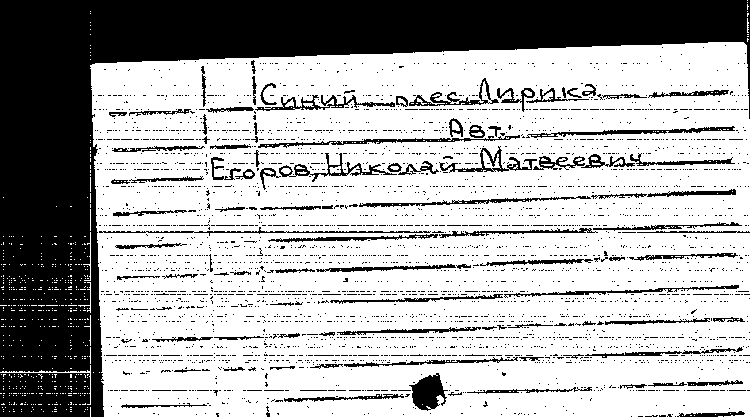 Синий плес. Лирика
Авт.:
Егоров, Николай Матвеевич